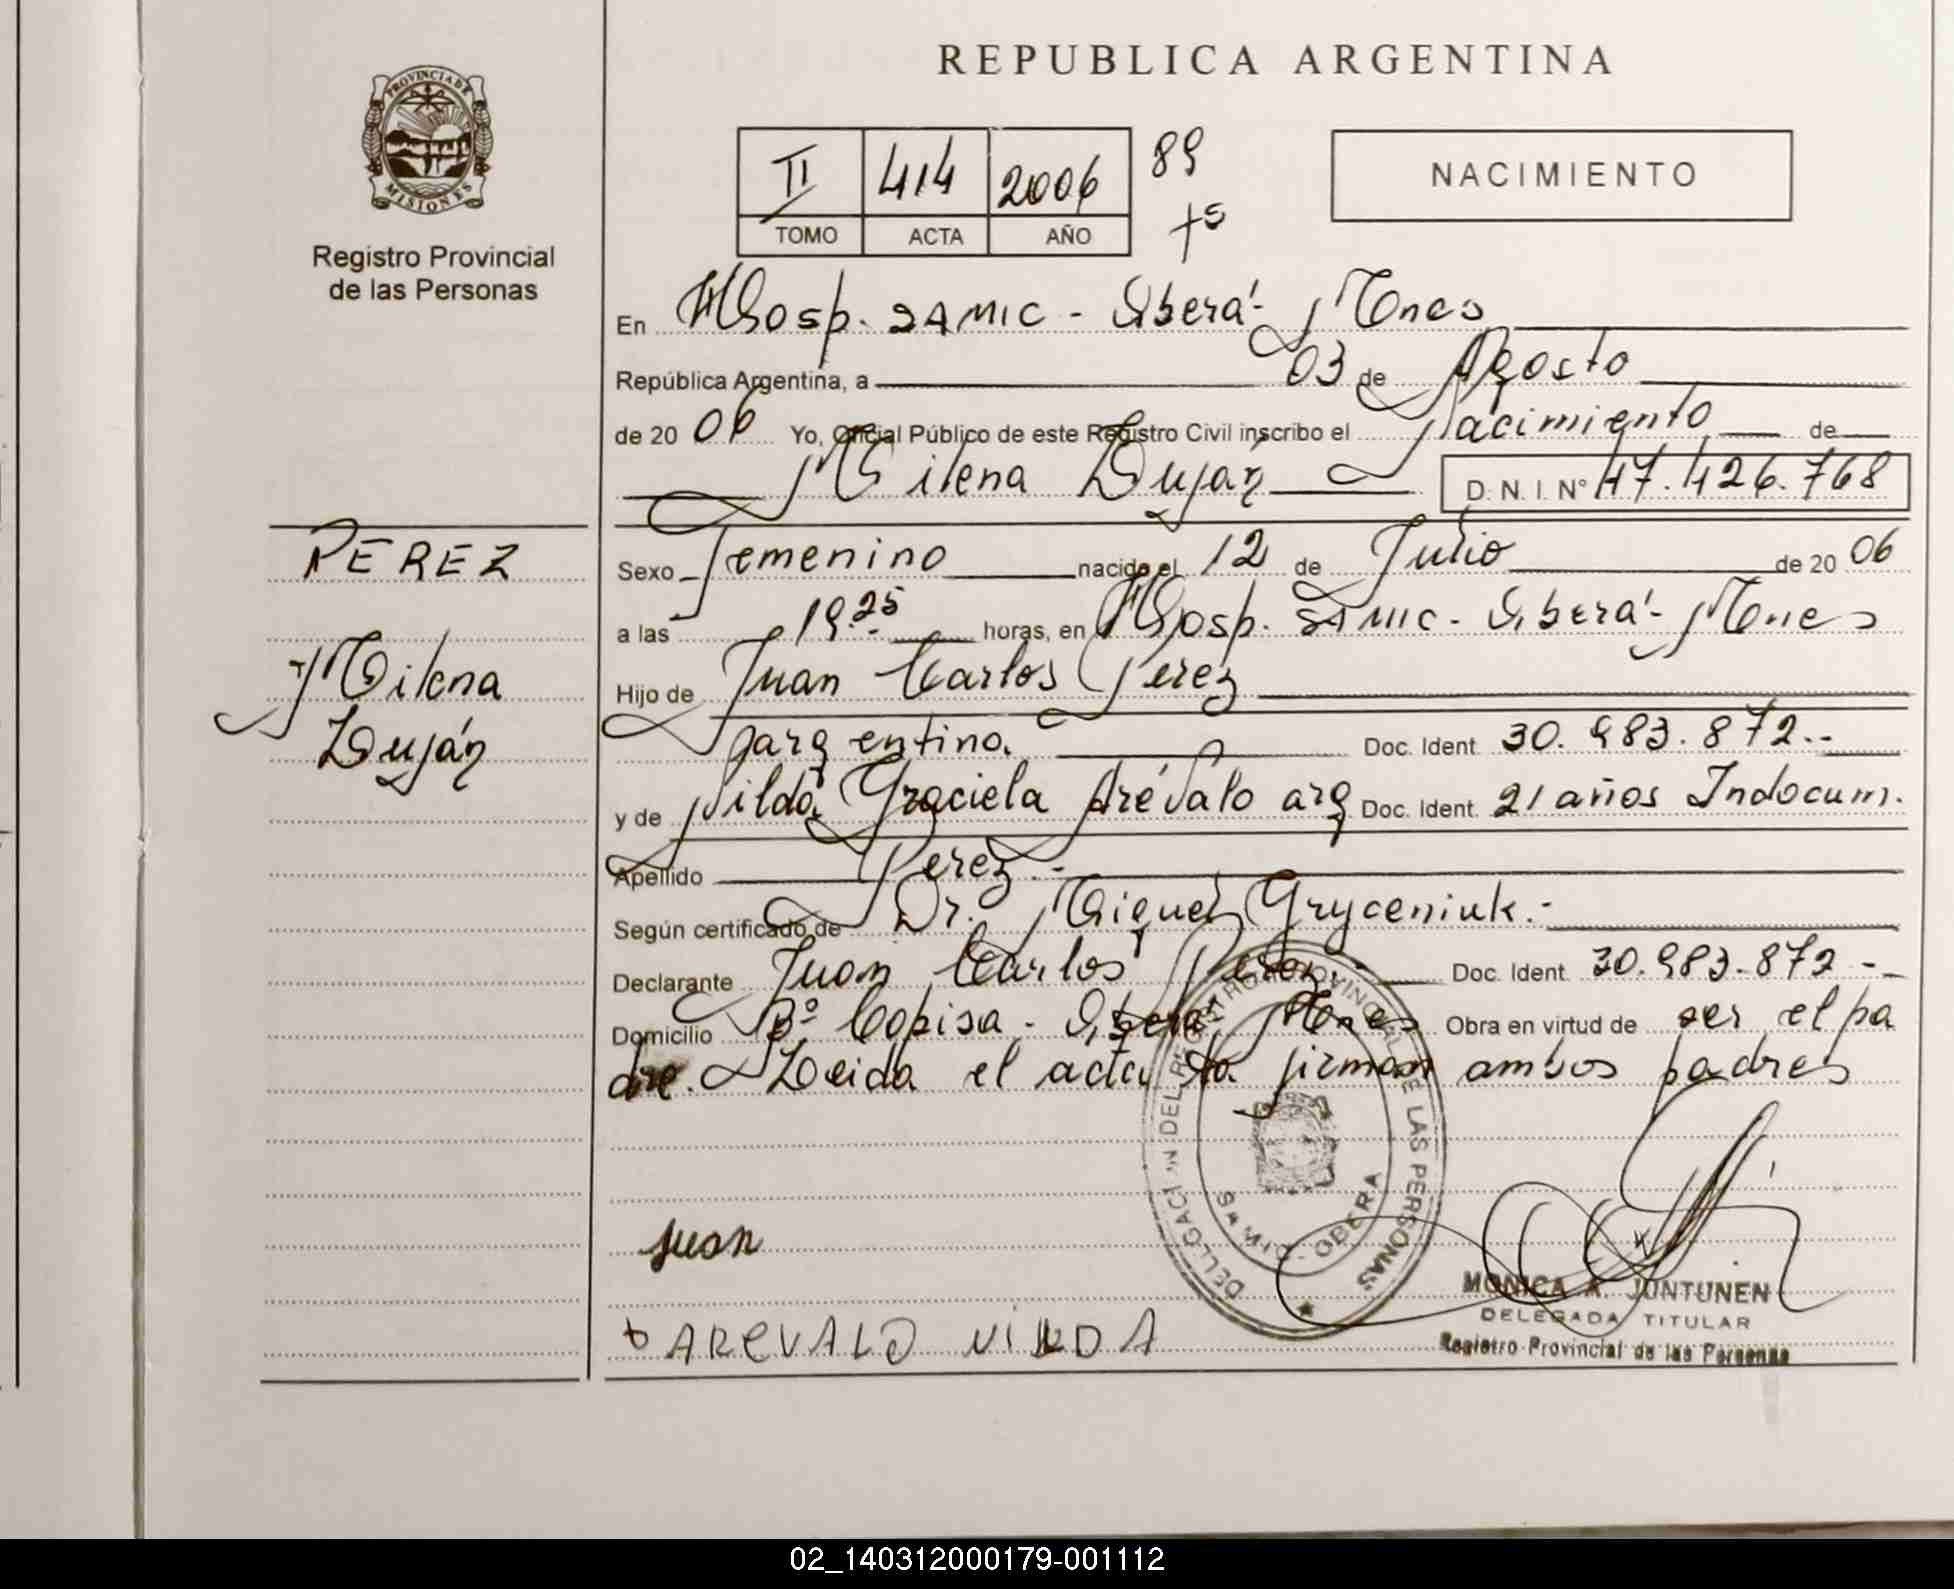 REPUBLICA ARGENTINA
PROVINCIA DE MISIONES
Registro Provincial
de las Personas
II 414 2006 89
TOMO ACTA AÑO +5
NACIMIENTO
En Hosp. SAMIC - Oberá - Mnes
República Argentina, a 03 de Agosto
de 20 06 Yo, Oficial Público de este Registro Civil inscribo el Nacimiento de
Milena Luján D. N. I. N° 47.426.768
PEREZ
Milena
Luján
Sexo Femenino nacido el 12 de Julio de 20 06
a las 19.25 horas, en Hosp. SAMIC - Oberá - Mnes
Hijo de Juan Carlos Perez
argentino. Doc. Ident. 30.983.872.-
y de Nilda Graciela Arévalo arg Doc. Ident. 21 años Indocum.
Apellido Perez.-
Según certificado de Dr. Miguel Gryceniuk.-
Declarante Juan Carlos Perez.- Doc. Ident. 30.983.872 -
Domicilio Bº Copisa - Oberá - Mnes Obra en virtud de ser el pa
dre. Leida el acta la firman ambos padres
DELEGACION DEL REGISTRO PROVINCIAL DE LAS PERSONAS
SAMIC - OBERA
Juan
AREVALO NILDA
MONICA A. JUNTUNEN
DELEGADA TITULAR
Registro Provincial de las Personas
02_140312000179-001112